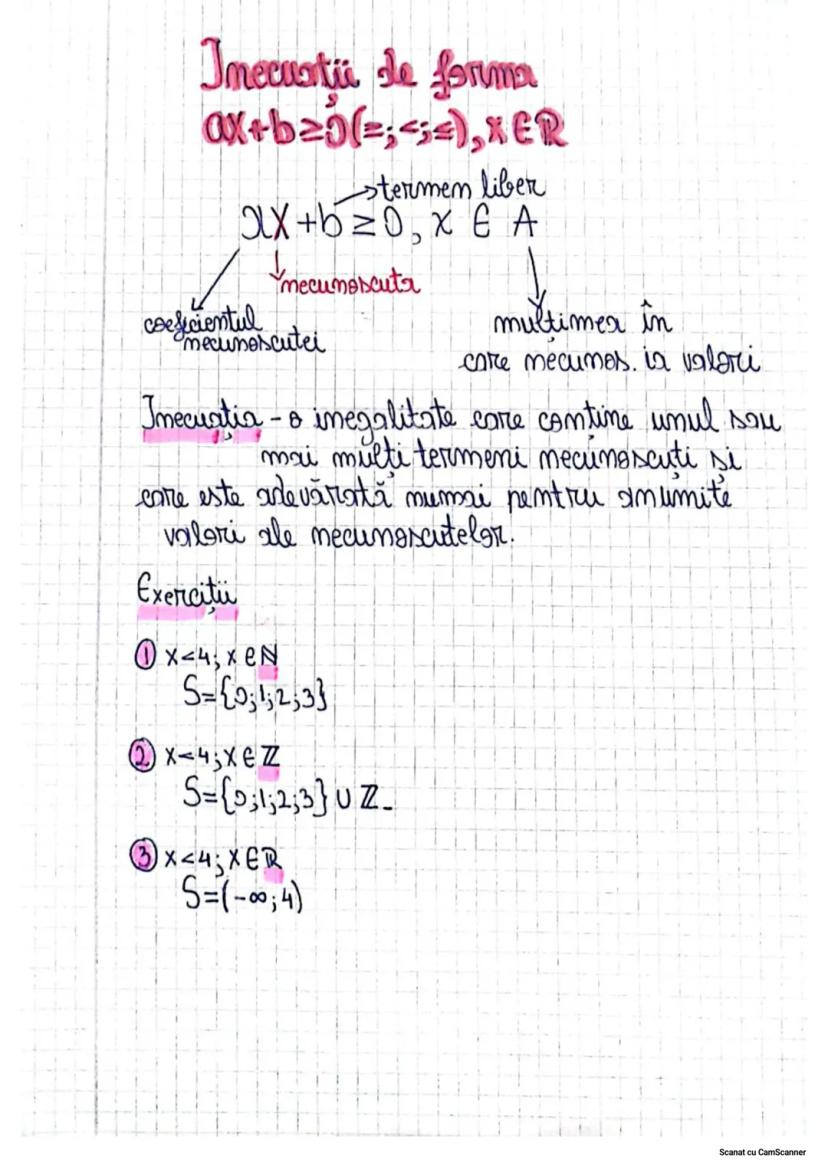 Inecuații de forma
ax+b≥0(=;<;≤),x∈ℝ
→termen liber
ax+b≥0, x ∈ A
necunoscuta
coeficientul
necunoscutei
mulțimea în
care necunos. ia valori
Inecuația - o inegalitate care conține unul sau
mai mulți termeni necunoscuți și
care este adevărată numai pentru anumite
valori ale necunoscutelor.
Exerciții
① x<4; x∈ℕ
S={0;1;2;3}
② x<4;x∈ℤ
S={0;1;2;3} ∪ ℤ_
③ x<4; x∈ℝ
S=(-∞;4)
Scanat cu CamScanner